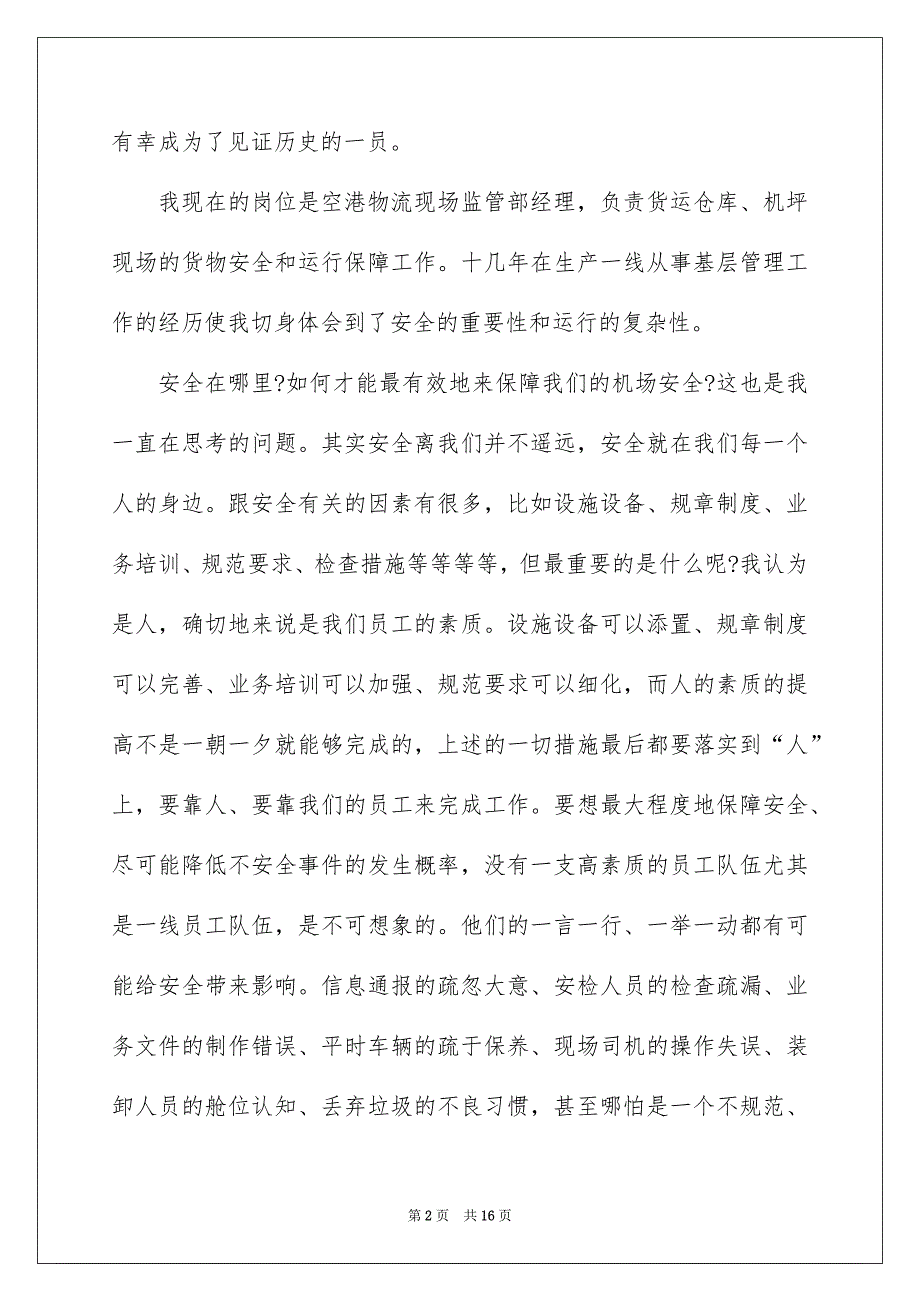 有幸成为了见证历史的一员。
我现在的岗位是空港物流现场监管部经理，负责货运仓库、机坪
现场的货物安全和运行保障工作。十几年在生产一线从事基层管理工
作的经历使我切身体会到了安全的重要性和运行的复杂性。
安全在哪里?如何才能最有效地来保障我们的机场安全?这也是我
一直在思考的问题。其实安全离我们并不遥远，安全就在我们每一个
人的身边。跟安全有关的因素有很多，比如设施设备、规章制度、业
务培训、规范要求、检查措施等等等等，但最重要的是什么呢?我认为
是人，确切地来说是我们员工的素质。设施设备可以添置、规章制度
可以完善、业务培训可以加强、规范要求可以细化，而人的素质的提
高不是一朝一夕就能够完成的，上述的一切措施最后都要落实到“人”
上，要靠人、要靠我们的员工来完成工作。要想最大程度地保障安全、
尽可能降低不安全事件的发生概率，没有一支高素质的员工队伍尤其
是一线员工队伍，是不可想象的。他们的一言一行、一举一动都有可
能给安全带来影响。信息通报的疏忽大意、安检人员的检查疏漏、业
务文件的制作错误、平时车辆的疏于保养、现场司机的操作失误、装
卸人员的舱位认知、丢弃垃圾的不良习惯，甚至哪怕是一个不规范、
第 2 页 共 16 页